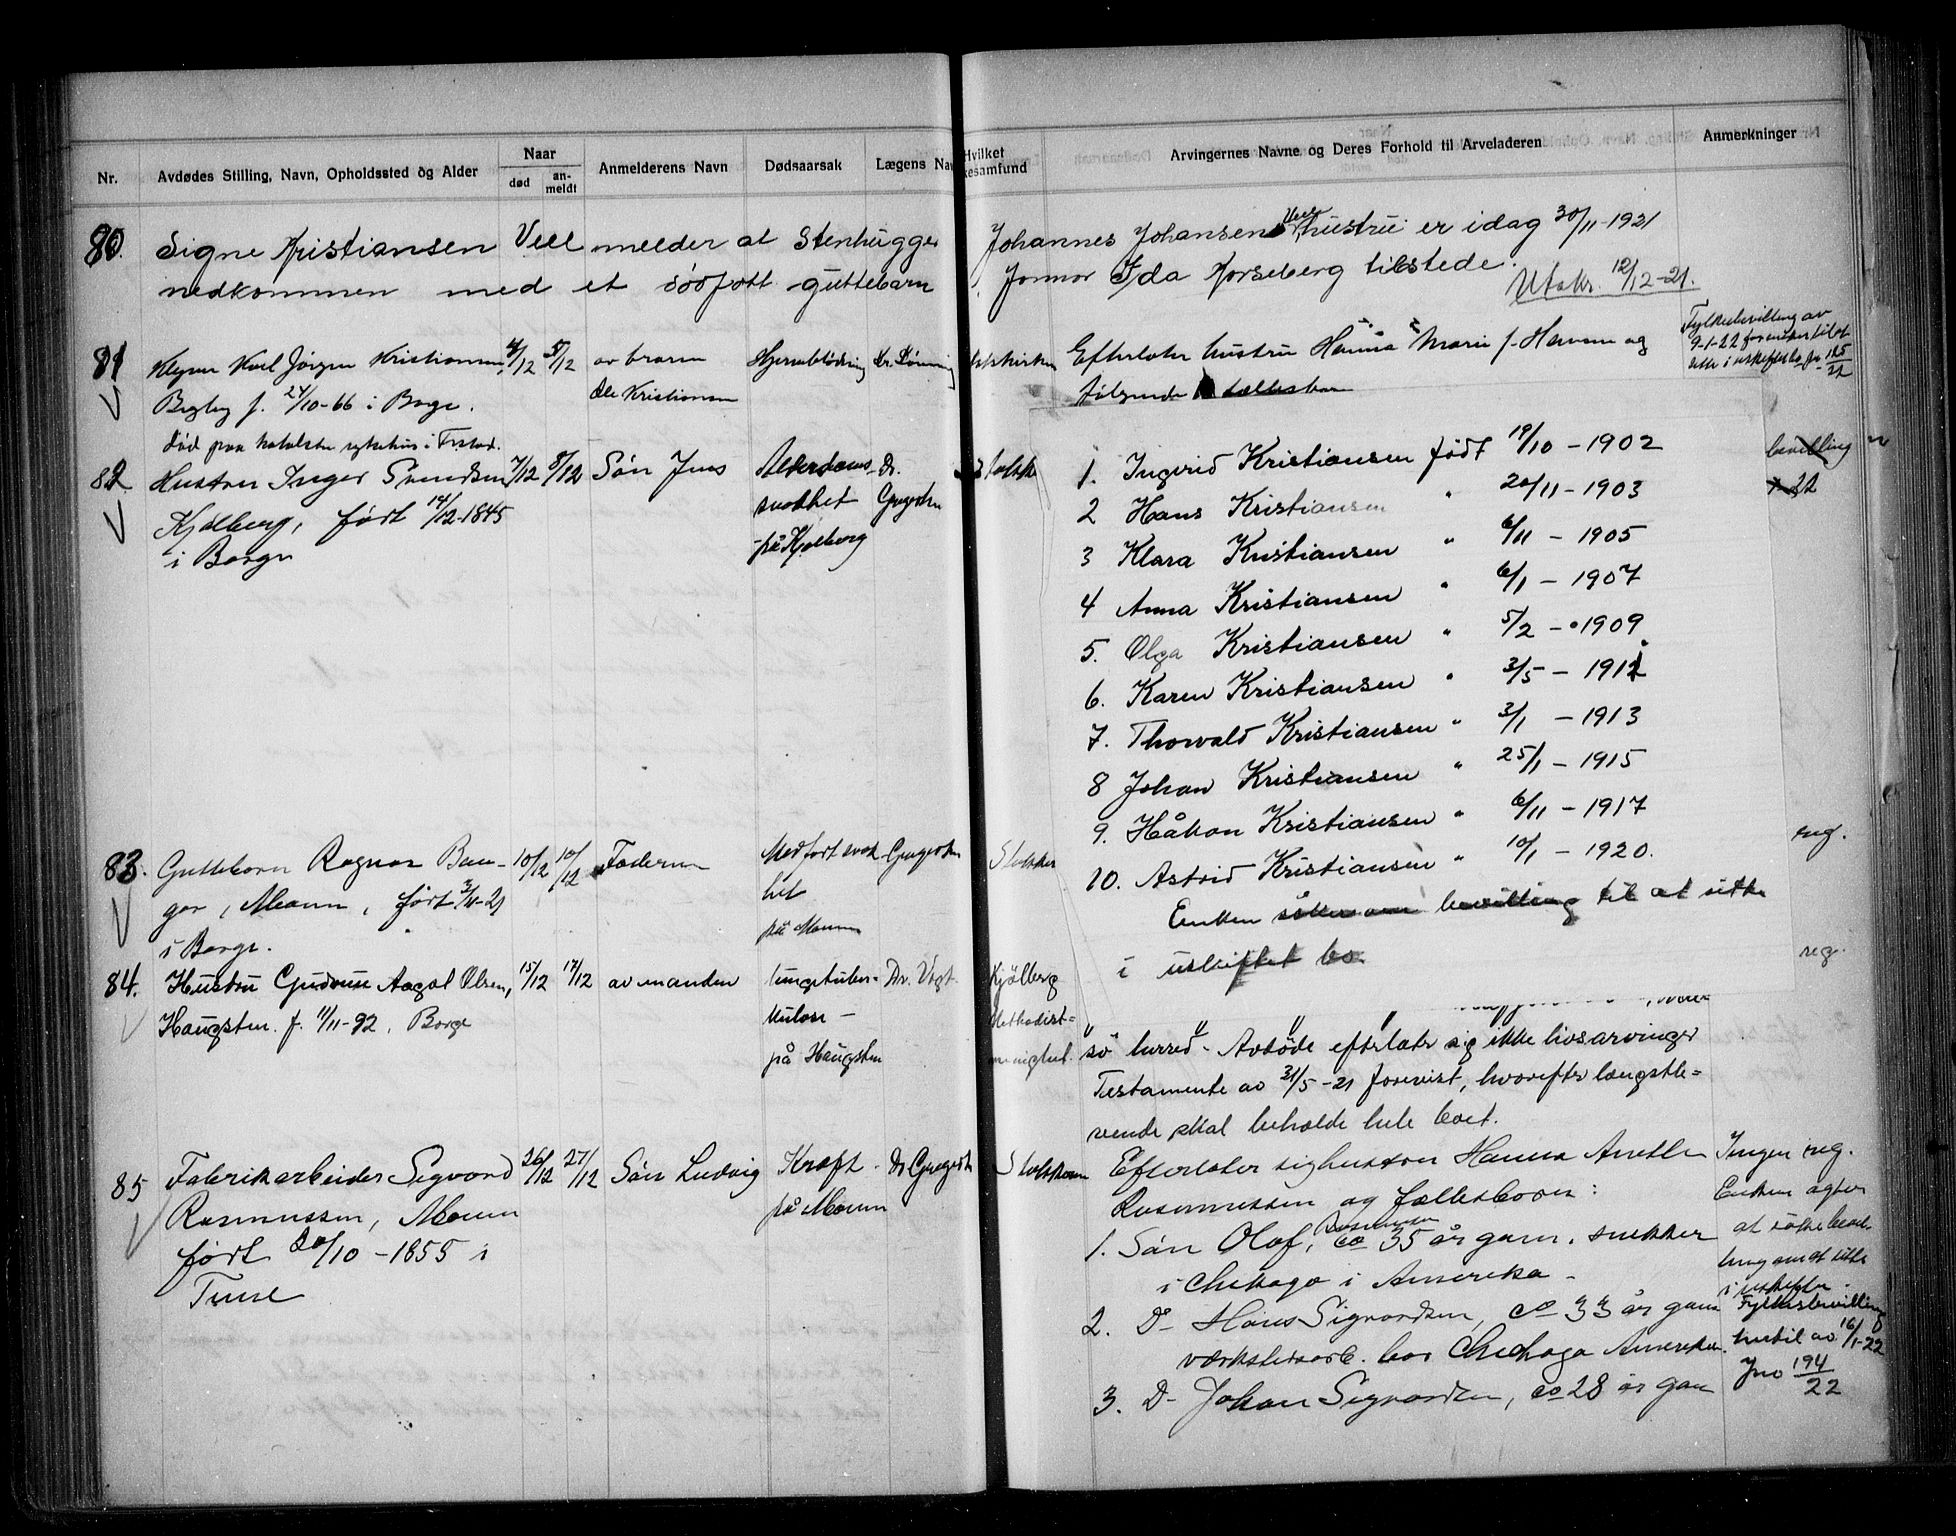 Nr.
Avdødes Stilling, Navn, Opholdssted og Alder
Naar
død
an-
meldt
Anmelderens Navn
Dødsaarsak
Lægens Nav
Hvilket
kesamfund
Arvingernes Navne og Deres Forhold til Arveladeren
Anmerkninger
80. Signe Kristiansen Vell melder at Stenhugger Johannes Johansens hustru er idag 30/11-1921
nedkommen med et dødfødt guttebarn Jormor Ida Torseberg tilstede.
Utskr. 12/12-21.
81 Karl Jørgen Kristiansen, 4/12 5/12 av broren Hjerneblödning Dr. Lönning
Begby f. 24/10-66 i Borge. Ole Kristiansen
død paa katolske sykehus i Frstad.
Efterlater hustru Hanna Marie f. Hansen og
følgende fællesbarn
Fylkesbevilling av
9-1-22
i uskiftet bo jr 125
21
1. Ingerid Kristiansen født 19/10 - 1902
2 Hans Kristiansen " 20/11 - 1903
3 Klara Kristiansen " 6/11 - 1905
4 Anna Kristiansen " 6/1 - 1907
5. Olga Kristiansen " 5/2 - 1909
6. Karen Kristiansen " 3/5 - 1911
7. Thorvald Kristiansen " 3/1 - 1913
8 Johan Kristiansen " 25/1 - 1915
9. Håkon Kristiansen " 6/11 - 1917
10. Astrid Kristiansen " 10/1 - 1920.
Enken söker om bevilling til at sitte
i uskiftet bo.
bevilling
22
82 Hustru Inger Svendsen 7/12 8/12 Søn Jens Alderdoms- Dr. Statsk
Kjølberg, født 14/12-1845 svakhet Gregersen
i Borge på Kjølberg
83. Guttebarn Ragnar Bau- 10/12 10/12 Faderen Medfødt svak- Gregersen Statskir
ger, Moum, født 3/11-21 het
i Borge. på Moum
reg.
84. Hustru Gudrun Aagot Olsen, 15/12 17/12 av manden lungetuber- Dr. Vogt Kjölberg
Haugsten. f. 11/11-92, Borge kulose - Methodist-
på Haugsten menighet.
reg.
" " "
sö herred. Avdøde efterlater sig ikke livsarvinger
Testamente av 31/5-21 forevist, hvorefter længstle-
vende skal beholde hele boet.
85 Fabrikarbeider Sigvard 26/12 27/12 Søn Ludvig Kræft Dr Gregersen Statskirken
Rasmussen, Moum på Moum
født 20/10 - 1855 i
Tune
Efterlater sig hustru Hanna Anette
Rasmussen og fællesbarn:
1. Søn Olaf, Rasmussen ca 35 år gam. snekker
i Chikago i Amerika -
2. D- Hans Sigvardsen, ca 33 år gam
værkstedsarb. bor Chichago Amerika.
3. D- Johan Sigvardsen, ca 28 år gam
Ingen reg.
Enken agter
at søke bevil-
ling om at sitte
i uskiftet.
Fylkesbevilling
hertil av 16/1-22
Jno 194
22